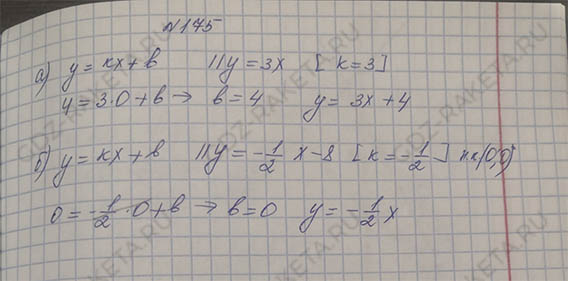 №175
а) y = kx + b || y = 3x [k = 3]
4 = 3·0 + b → b = 4 y = 3x + 4
б) y = kx + b || y = -1/2 x - 8 [k = -1/2] (0;0)
0 = -1/2 · 0 + b → b = 0 y = -1/2 x
GDZ-RAKETA.RU